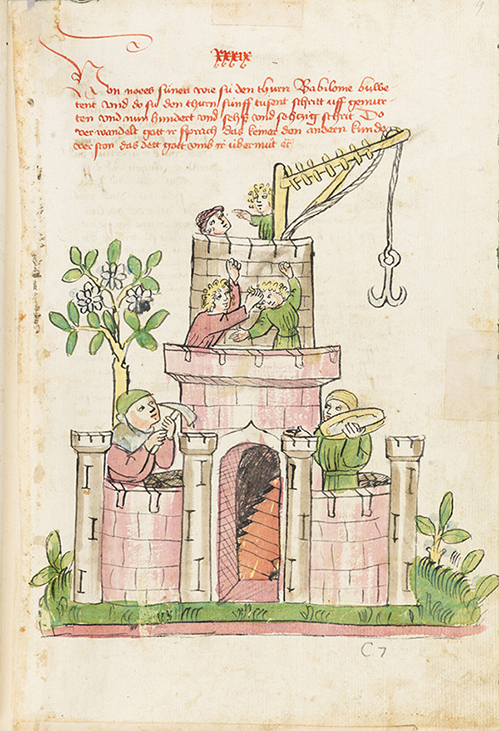 xxxix
Von noees sünen wie sü den thurn Babilonie buwe
tent vnd do sü den thurn fünff tusent schritt uff gemure
ten vnd nün hundert vnd sehs vnd sehtzig schrit Do
ver wandelt gott ir sprach das keiner den andern kunde
ver ston das dett gott vmb ir über můt ec
C 7